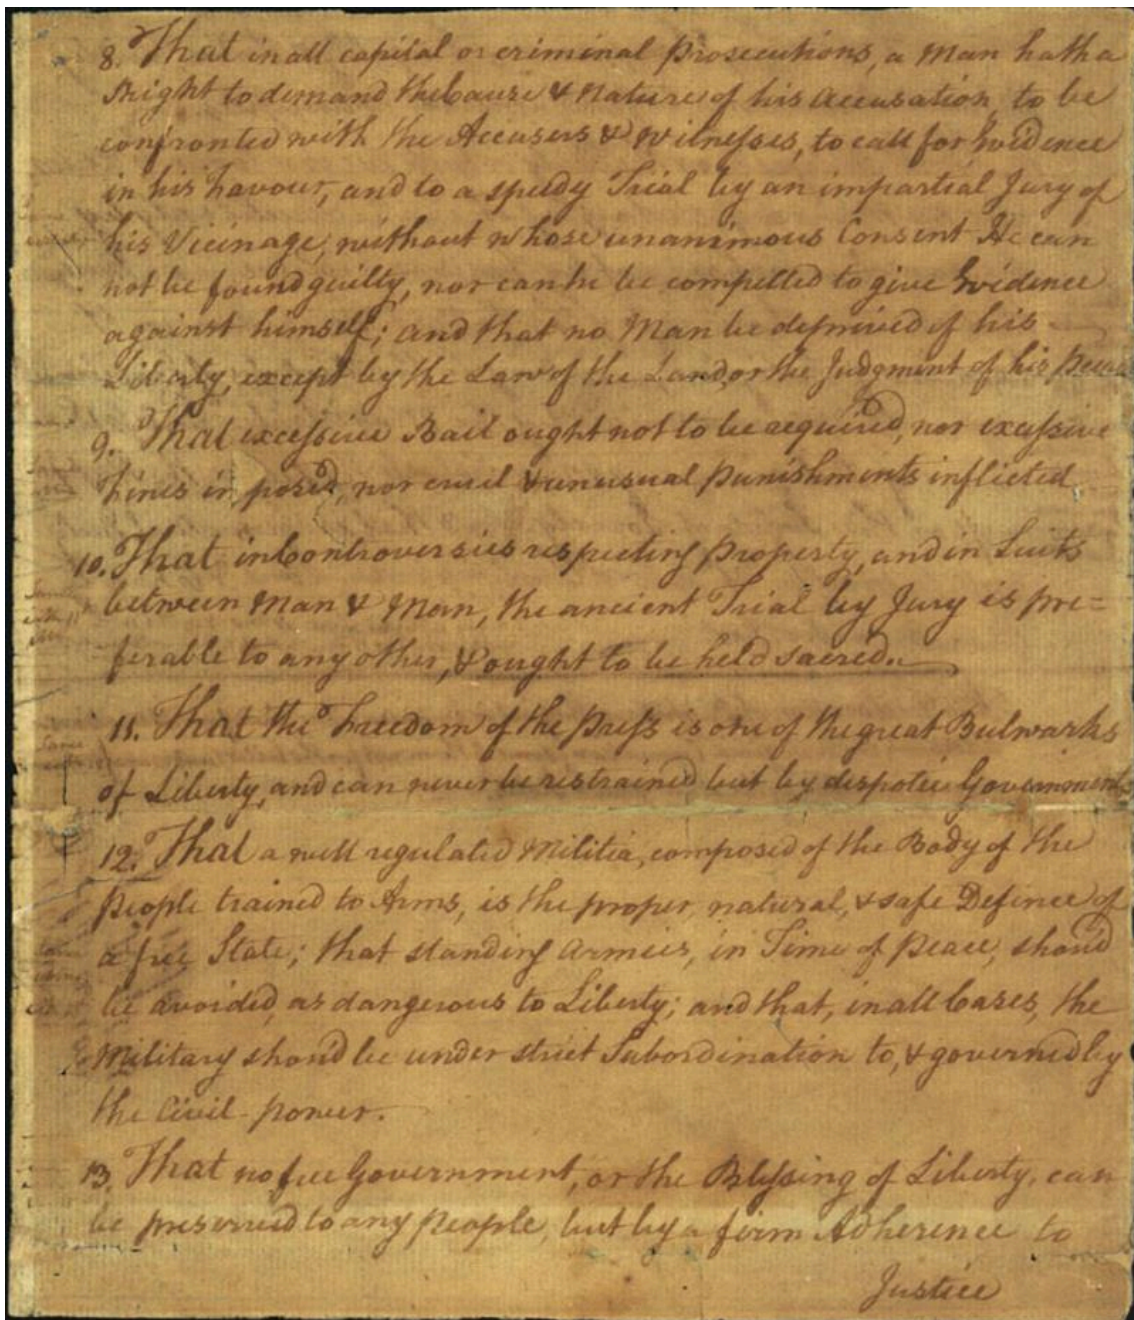 8. That in all capital or criminal Prosecutions, a Man hath a
Right to demand the Cause & Nature of his Accusation, to be
confronted with the Accusers & Witnesses, to call for Evidence
in his Favour, and to a speedy Trial by an impartial Jury of
his Vicinage, without whose unanimous Consent He can
not be found guilty, nor can he be compelled to give Evidence
against himself; and that no Man be deprived of his
Liberty, except by the Law of the Land, or the Judgment of his Peers
9. That excessive Bail ought not to be required, nor excessive
Fines imposed, nor cruel & unusual Punishments inflicted
10. That in Controversies respecting Property, and in Suits
between Man & Man, the ancient Trial by Jury is pre=
ferable to any other, & ought to be held sacred.
11. That the Freedom of the Press is one of the great Bulwarks
of Liberty, and can never be restrained but by despotic Governments
12. That a well regulated Militia, composed of the Body of the
People trained to Arms, is the proper, natural, & safe Defence of
a free State; that standing Armies, in Time of Peace, should
be avoided, as dangerous to Liberty; and that, in all Cases, the
Military should be under strict Subordination to, & governed by
the Civil power.
13. That no free Government, or the Blessing of Liberty, can
be preserved to any People, but by a firm Adherence to
Justice